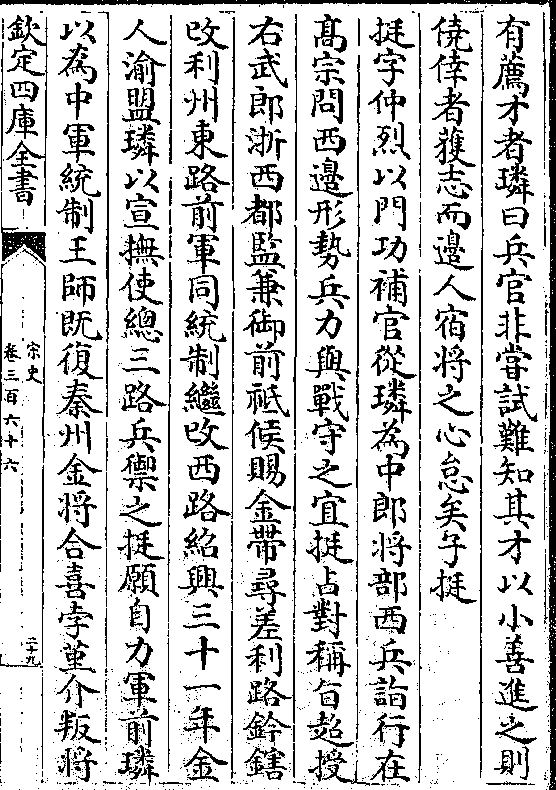 有薦才者璘曰兵官非嘗試難知其才以小善進之則
僥倖者獲志而邊人宿將之心怠矣子挺
挺字仲烈以門功補官從璘為中郎將部西兵詣行在
髙宗問西邊形勢兵力與戰守之宜挺占對稱㫖超授
右武郎浙西都監兼御前祗候賜金帶尋差利路鈐轄
改利州東路前軍同統制繼改西路紹興三十一年金
人渝盟璘以宣撫使總三路兵禦之挺願自力軍前璘
以為中軍統制王師既復秦州金將合喜孛堇介叛將
欽定四庫全書
宋史
卷三百六十六
二十九